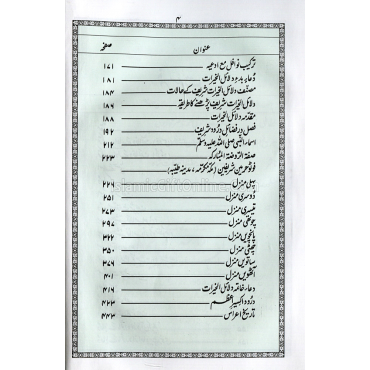 ۴
عنوان صفحہ
ترکیب نوافل مع ادعیہ ۱۷۱
دُعاء بدء دلائل الخیرات ۱۸۱
مصنّف دلائل الخیرات شریف کے حالات ۱۸۴
دلائل الخیرات شریف پڑھنے کا طریقہ ۱۸۶
مقدمہ دلائل الخیرات ۱۸۸
فصل در فضائل درُود شریف ۱۹۲
اسماء النبی صلی اللہ علیہ وسلم ۲۱۲
صفۃ الروضۃ المبارکہ ۲۲۳
فوٹو حرمین شریفین (مکہ مکرمہ، مدینہ طیبہ)
پہلی منزل ۲۲۹
دُوسری منزل ۲۵۱
تیسری منزل ۲۷۳
چوتھی منزل ۲۹۷
پانچویں منزل ۳۲۲
چھٹی منزل ۳۵۰
ساتویں منزل ۳۷۶
آٹھویں منزل ۴۰۱
دعاء خاتمہ دلائل الخیرات ۴۱۶
درُود اکسیر اعظم ۴۲۳
تاریخ اعراس ۴۴۳